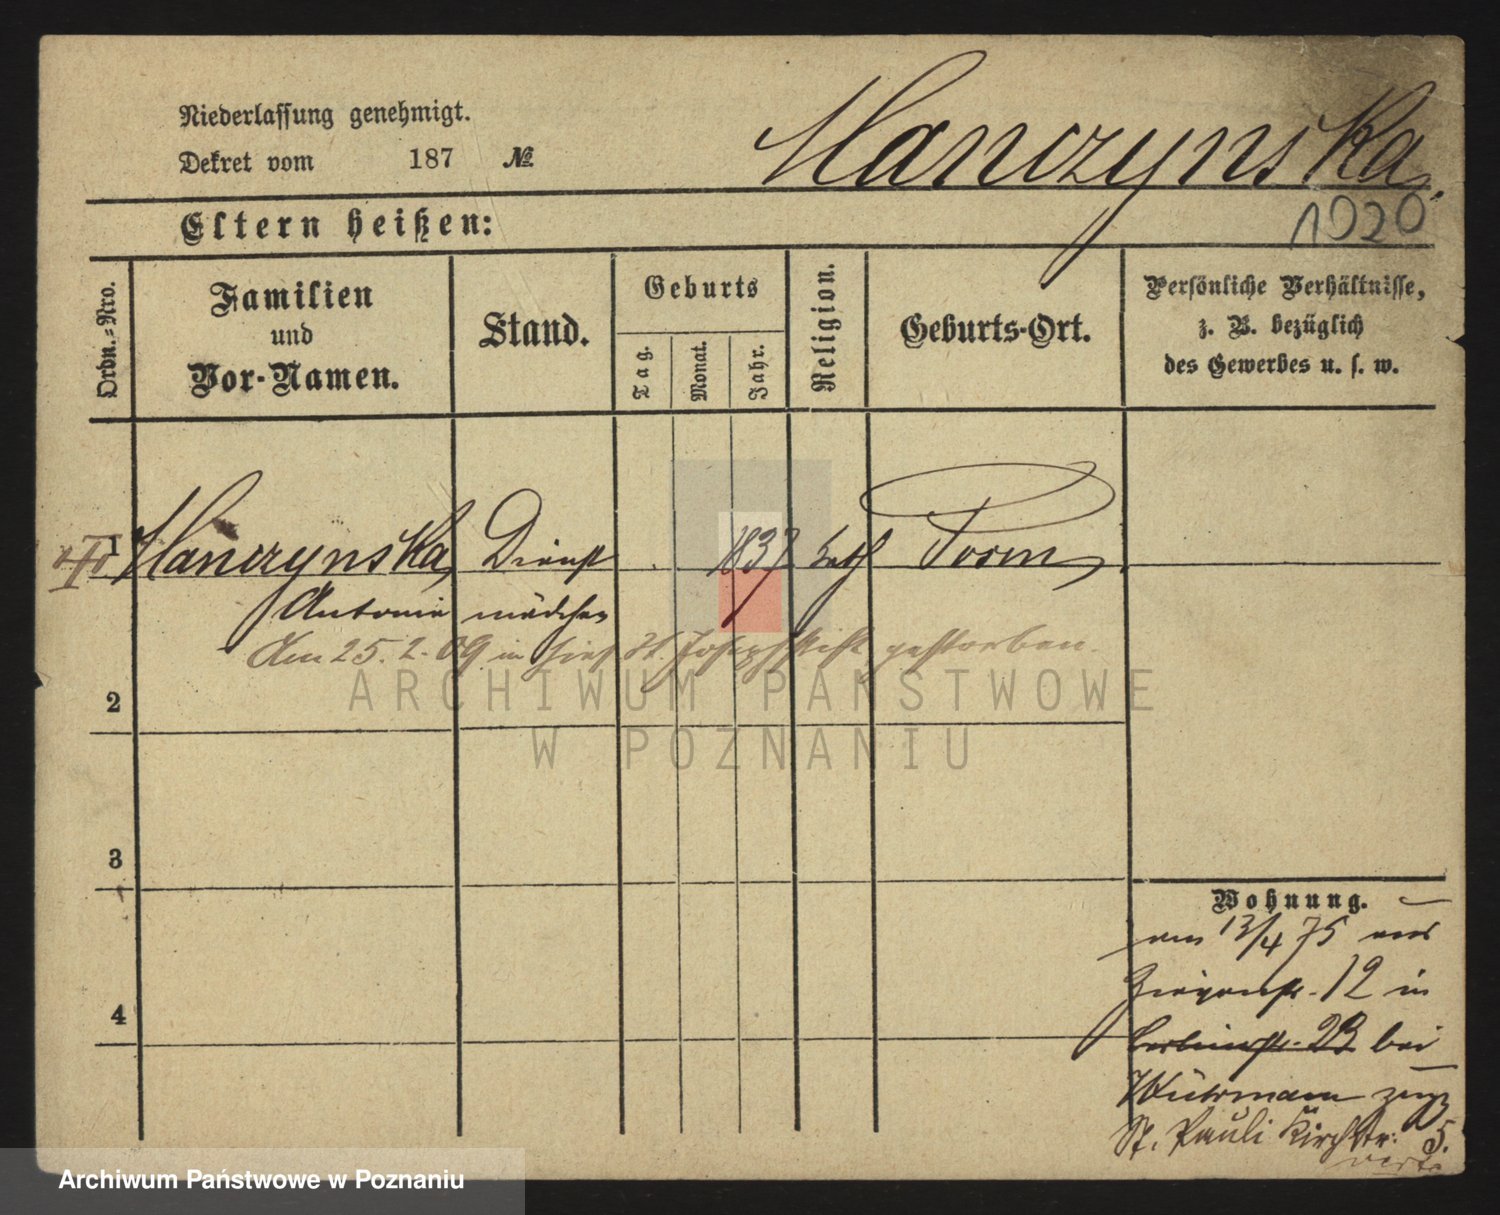 Niederlassung genehmigt.
Dekret vom 187 №
Manczynska.
1020
Eltern heißen:
Ordn.-Nro.
Familien
und
Vor-Namen.
Stand.
Geburts
Tag.
Monat.
Jahr.
Religion.
Geburts-Ort.
Persönliche Verhältnisse,
z. B. bezüglich
des Gewerbes u. s. w.
1 Manczynska Dienst 1837 kath Posen
Antonie mädchen
Am 25. 2. 09 in hies St. Josephstift gestorben.
ARCHIWUM PAŃSTWOWE
W POZNANIU
2
3
4
Wohnung.
am 13/4 75 aus
12 in
Berlinerstr. 23 bei
zugz
St. Pauli Kirchstr. 5.
verte
Archiwum Państwowe w Poznaniu